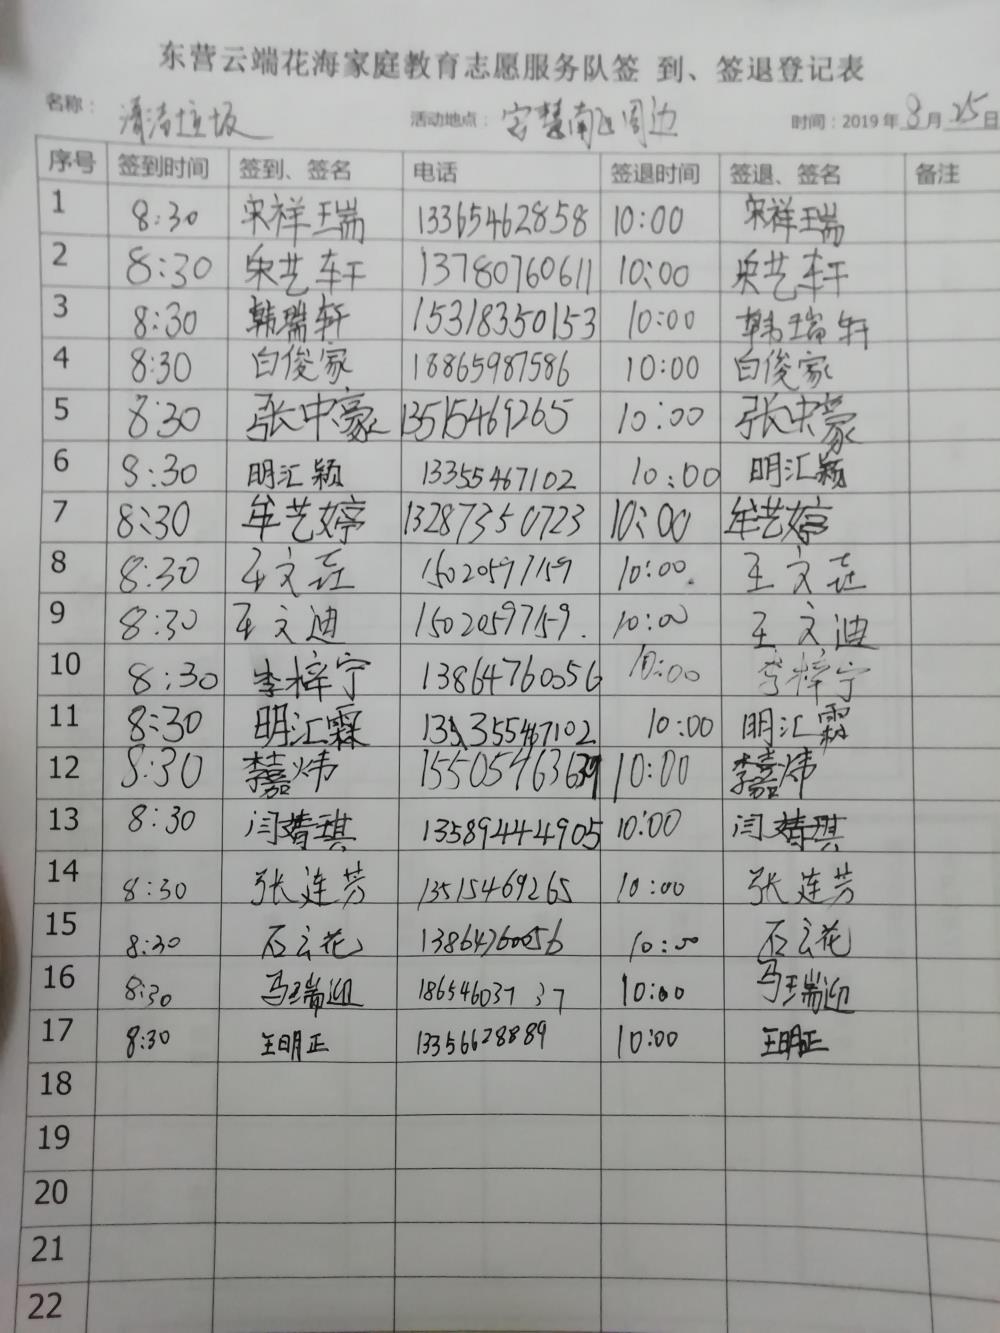 东营云端花海家庭教育志愿服务队签 到、签退登记表
名称： 清洁垃圾 活动地点： 南区周边 时间：2019年8月25日
序号 签到时间 签到、签名 电话 签退时间 签退、签名 备注
1 8:30 宋祥瑞 13365462858 10:00 宋祥瑞
2 8:30 宋艺轩 13780760611 10:00 宋艺轩
3 8:30 韩瑞轩 15318350153 10:00 韩瑞轩
4 8:30 白俊家 18865987586 10:00 白俊家
5 8:30 张中豪 13515469265 10:00 张中豪
6 8:30 明汇颖 13355467102 10:00 明汇颖
7 8:30 牟艺婷 13287350723 10:00 牟艺婷
8 8:30 王文 15020597159 10:00 王文
9 8:30 王文迪 15020597159. 10:00 王文迪
10 8:30 李梓宁 13864760056 10:00 李梓宁
11 8:30 明汇霖 13355467102 10:00 明汇霖
12 8:30 李嘉炜 15505463639 10:00 李嘉炜
13 8:30 闫婧琪 13589444905 10:00 闫婧琪
14 8:30 张连芳 13515469265 10:00 张连芳
15 8:30 石云花 13864760056 10:00 石云花
16 8:30 马瑞迎 18654603737 10:00 马瑞迎
17 8:30 王明正 13356628889 10:00 王明正
18
19
20
21
22